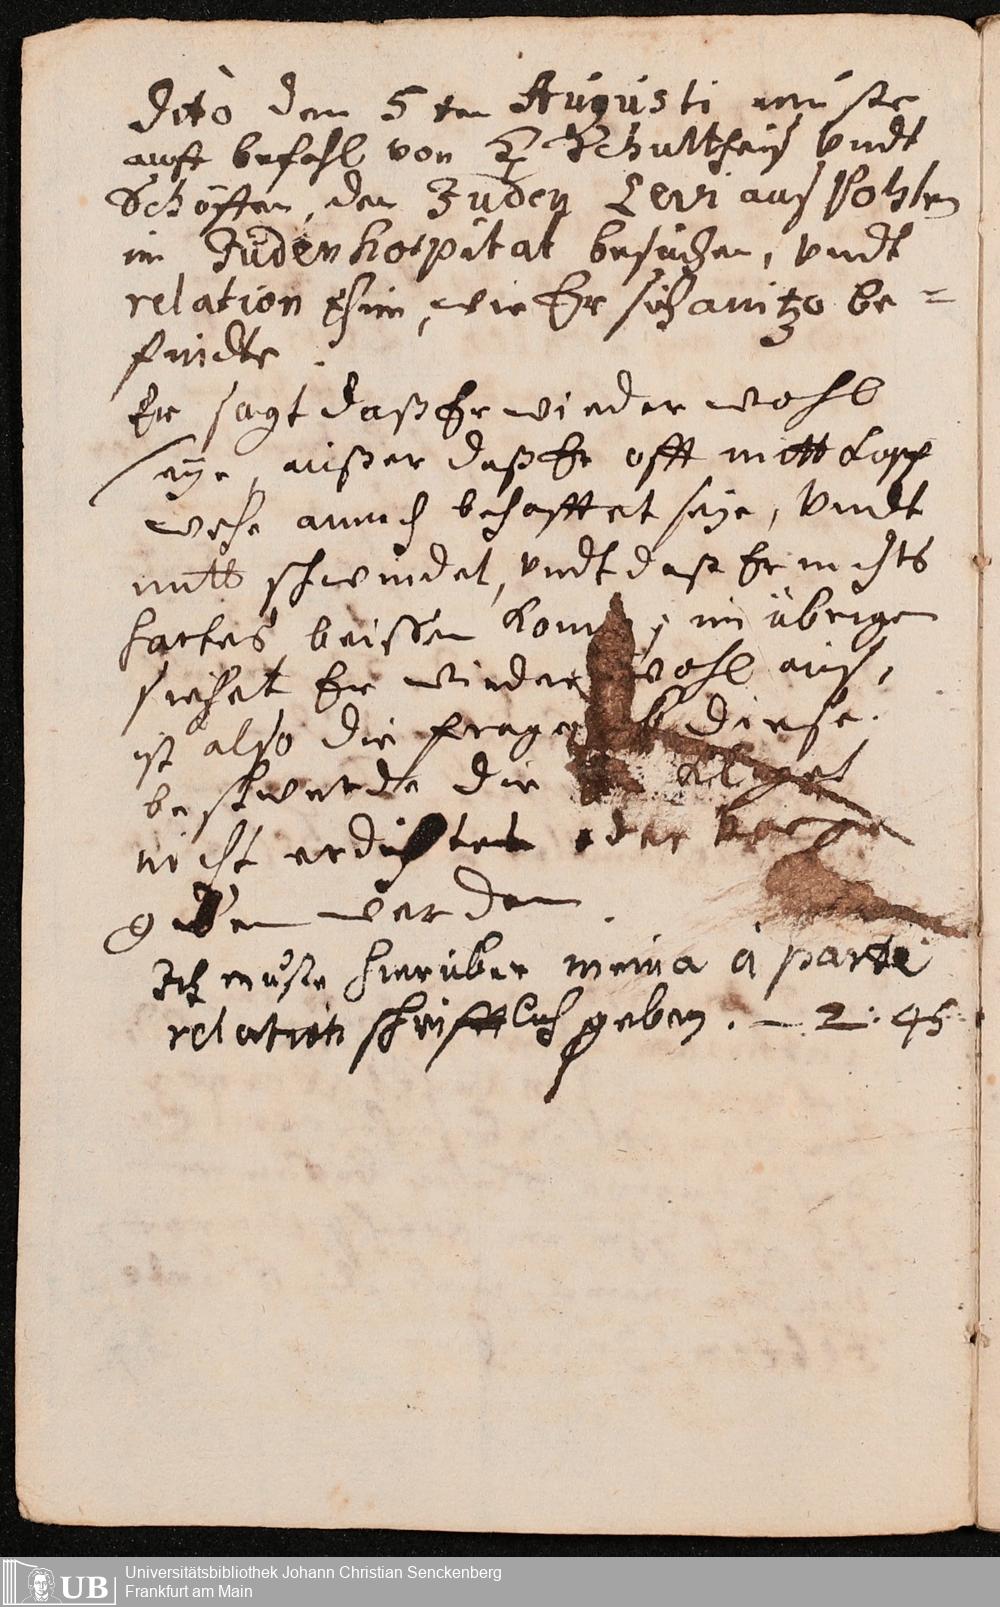 Dito den 5ten Augusti muste
auff befehl von H Schultheiß undt
Schöffen, den Juden Levi auß Pohlen
im Juden hospital besuchen, undt
relation thun, wie Er sich anitzo be=
findte.
Er sagt daß Er wieder wohl
seye, außer daß Er offt mitt Kopf
wehe annoch behafftet seye, undt
mitt schwindel, undt daß Er nichts
hartes beissen könne; im übrigen
siehet Er wieder wohl auß,
ist also die frage ob diese
beschwerde die er klaget
nicht erdichtet oder vorge
geben werden.
Ich muste hierüber meine à parte
relation schrifftlich geben. – 2: 45
Universitätsbibliothek Johann Christian Senckenberg
Frankfurt am Main
UB